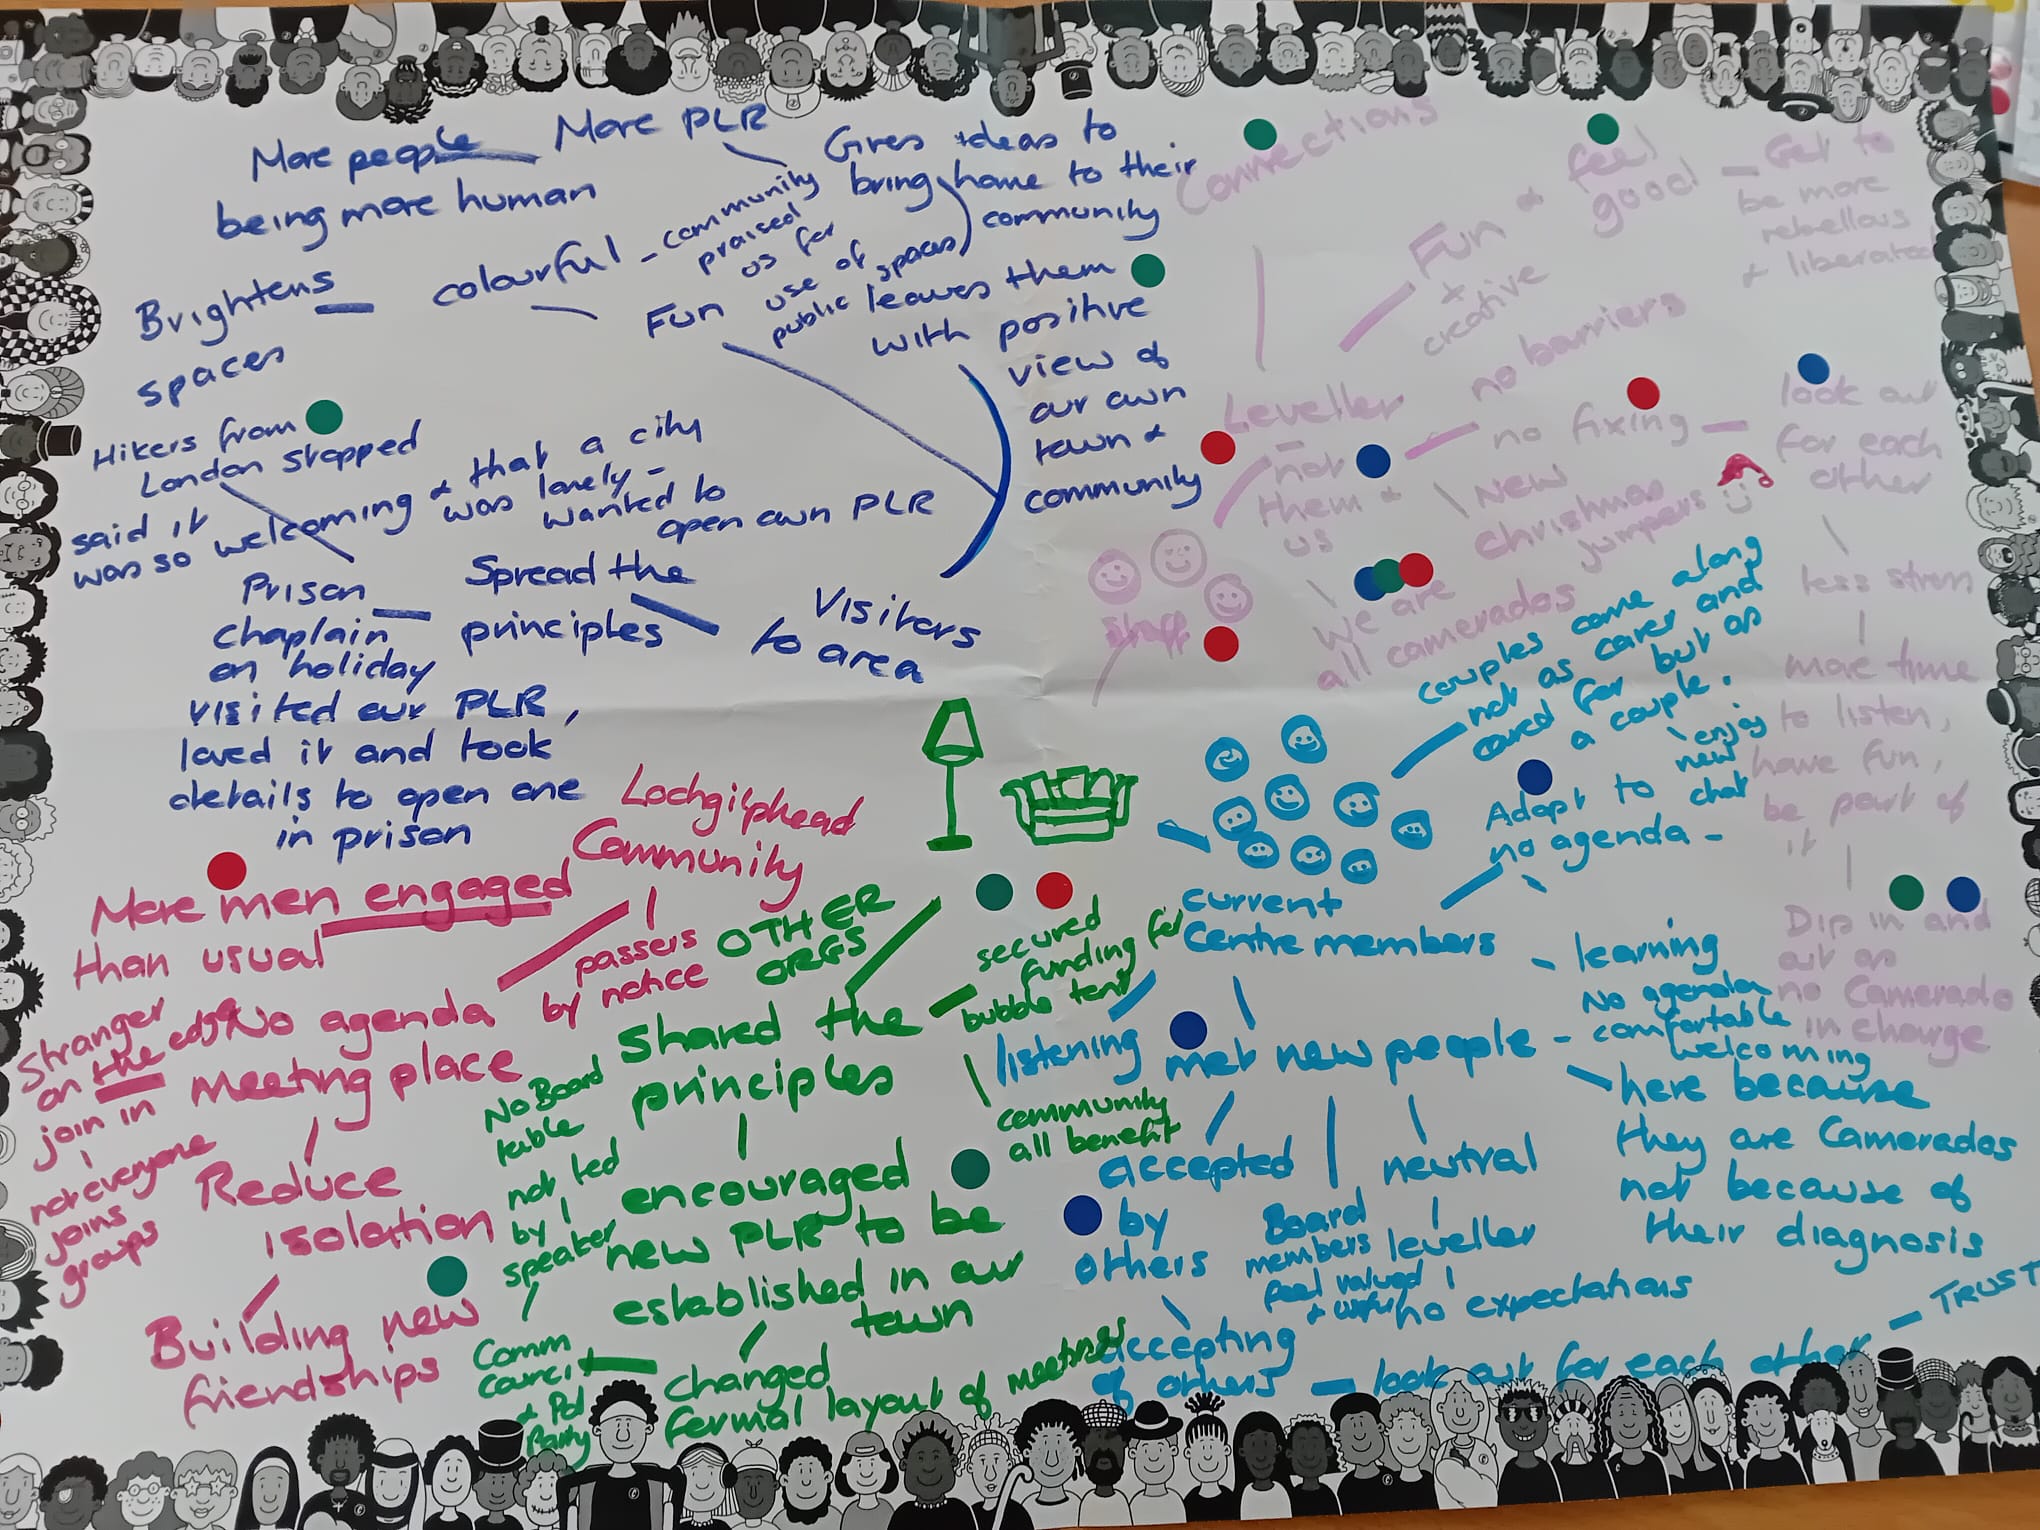 More people
being more human
More PLR
Brightens
spaces
colourful
community
praised
us for
use of
public spaces
Fun
Gives ideas to
bring home to their
community
leaves them
with positive
view of
our own
town &
community
Hikers from
London stopped
said it
was so welcoming & that a city
was lonely -
wanted to
open own PLR
Prison
Chaplain
on holiday
visited our PLR,
loved it and took
details to open one
in prison
Spread the
principles
Visitors
to area
Connections
Fun &
feel
good
+
creative
Get to
be more
rebellous
& liberated
Leveller
-
not
them &
us
no barriers
no fixing
New
Christmas
jumpers
look out
for each
other
less stress
more time
to listen,
have fun,
be part of
it
Dip in and
out as
no Camerado
in charge
Staff
We are
all camerados
Lochgilphead
Community
More men engaged
than usual
passers
by notice
No agenda
meeting place
Stranger
on the edge
join in
not everyone
joins
groups
Reduce
isolation
Building new
friendships
OTHER
ORGS
Shared the
principles
secured
funding for
bubble tent
community
all benefit
No Board
table
not led
by 1
speaker
encouraged
new PLR to be
established in our
town
changed
formal layout of meetings
Comm
Council
& Pol
Party
current
Centre members
couples come along
not as carer and
cared for but as
a couple.
enjoy
new
chat
Adapt to
no agenda -
learning
No agenda
comfortable
welcoming
listening
met new people
here because
they are Camerados
not because of
their diagnosis
accepted
by
others
Board
members
feel valued
& useful
neutral
leveller
no expectations
accepting
of others
look out for each other
TRUST